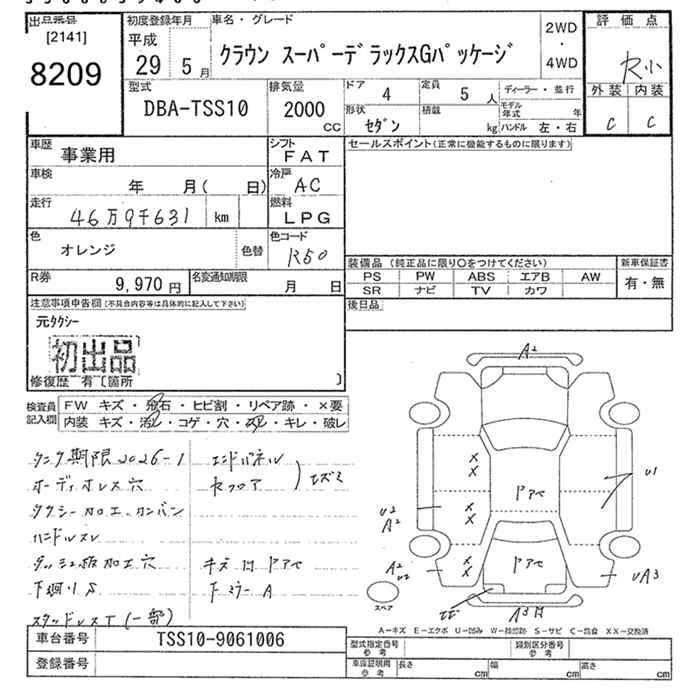 出品番号
[2141]
8209
初度登録年月
平成
29 5月
車名・グレード
クラウン スーパーデラックスGパッケージ
2WD
・
4WD
評価点
R小
外装 内装
C C
型式
DBA-TSS10
排気量
2000
cc
ドア 4
定員 5人
ディーラー・並行
形状 セダン
積載 kg
モデル年式 年
ハンドル 左・右
車歴 事業用
シフト FAT
車検 年 月( 日)
冷房 AC
走行 46万9千631 km
燃料 LPG
色 オレンジ 色替
色コード R50
R券 9,970円
名変通知期限 月 日
セールスポイント(正常に機能するものに限ります)
装備品 (純正品に限り○をつけてください)
新車保証書
PS PW ABS エアB AW
SR ナビ TV カワ
有・無
後日品
注意事項申告欄(不具合内容等は具体的に記入して下さい)
元タクシー
初出品
修復歴 有〔箇所 〕
検査員記入欄
FW キズ・飛石・ヒビ割・リペア跡・×要
内装 キズ・汚レ・コゲ・穴・スレ・キレ・破レ
タンク期限2026-1
エンドパネル
オーディオレス穴
セフロア
エズミ
タクシー加工、カンバン
ハンドルスレ
ダッシュ板加工穴
キズ凹ドアペ
下廻りS
下ミラーA
スタッドレスT(一部)
A2
×
×
×
×
×
×
ドアペ
U1
U2
A2
A2
U2
ドアペ
UA3
エビ
A3凹
スペア
A-キズ E-エクボ U-凹み W-補修跡 S-サビ C-腐食 XX-交換済
車台番号 TSS10-9061006
登録番号
型式指定番号 参考
類別区分番号 参考
車庫証明用 参考
長さ cm
幅 cm
高さ cm